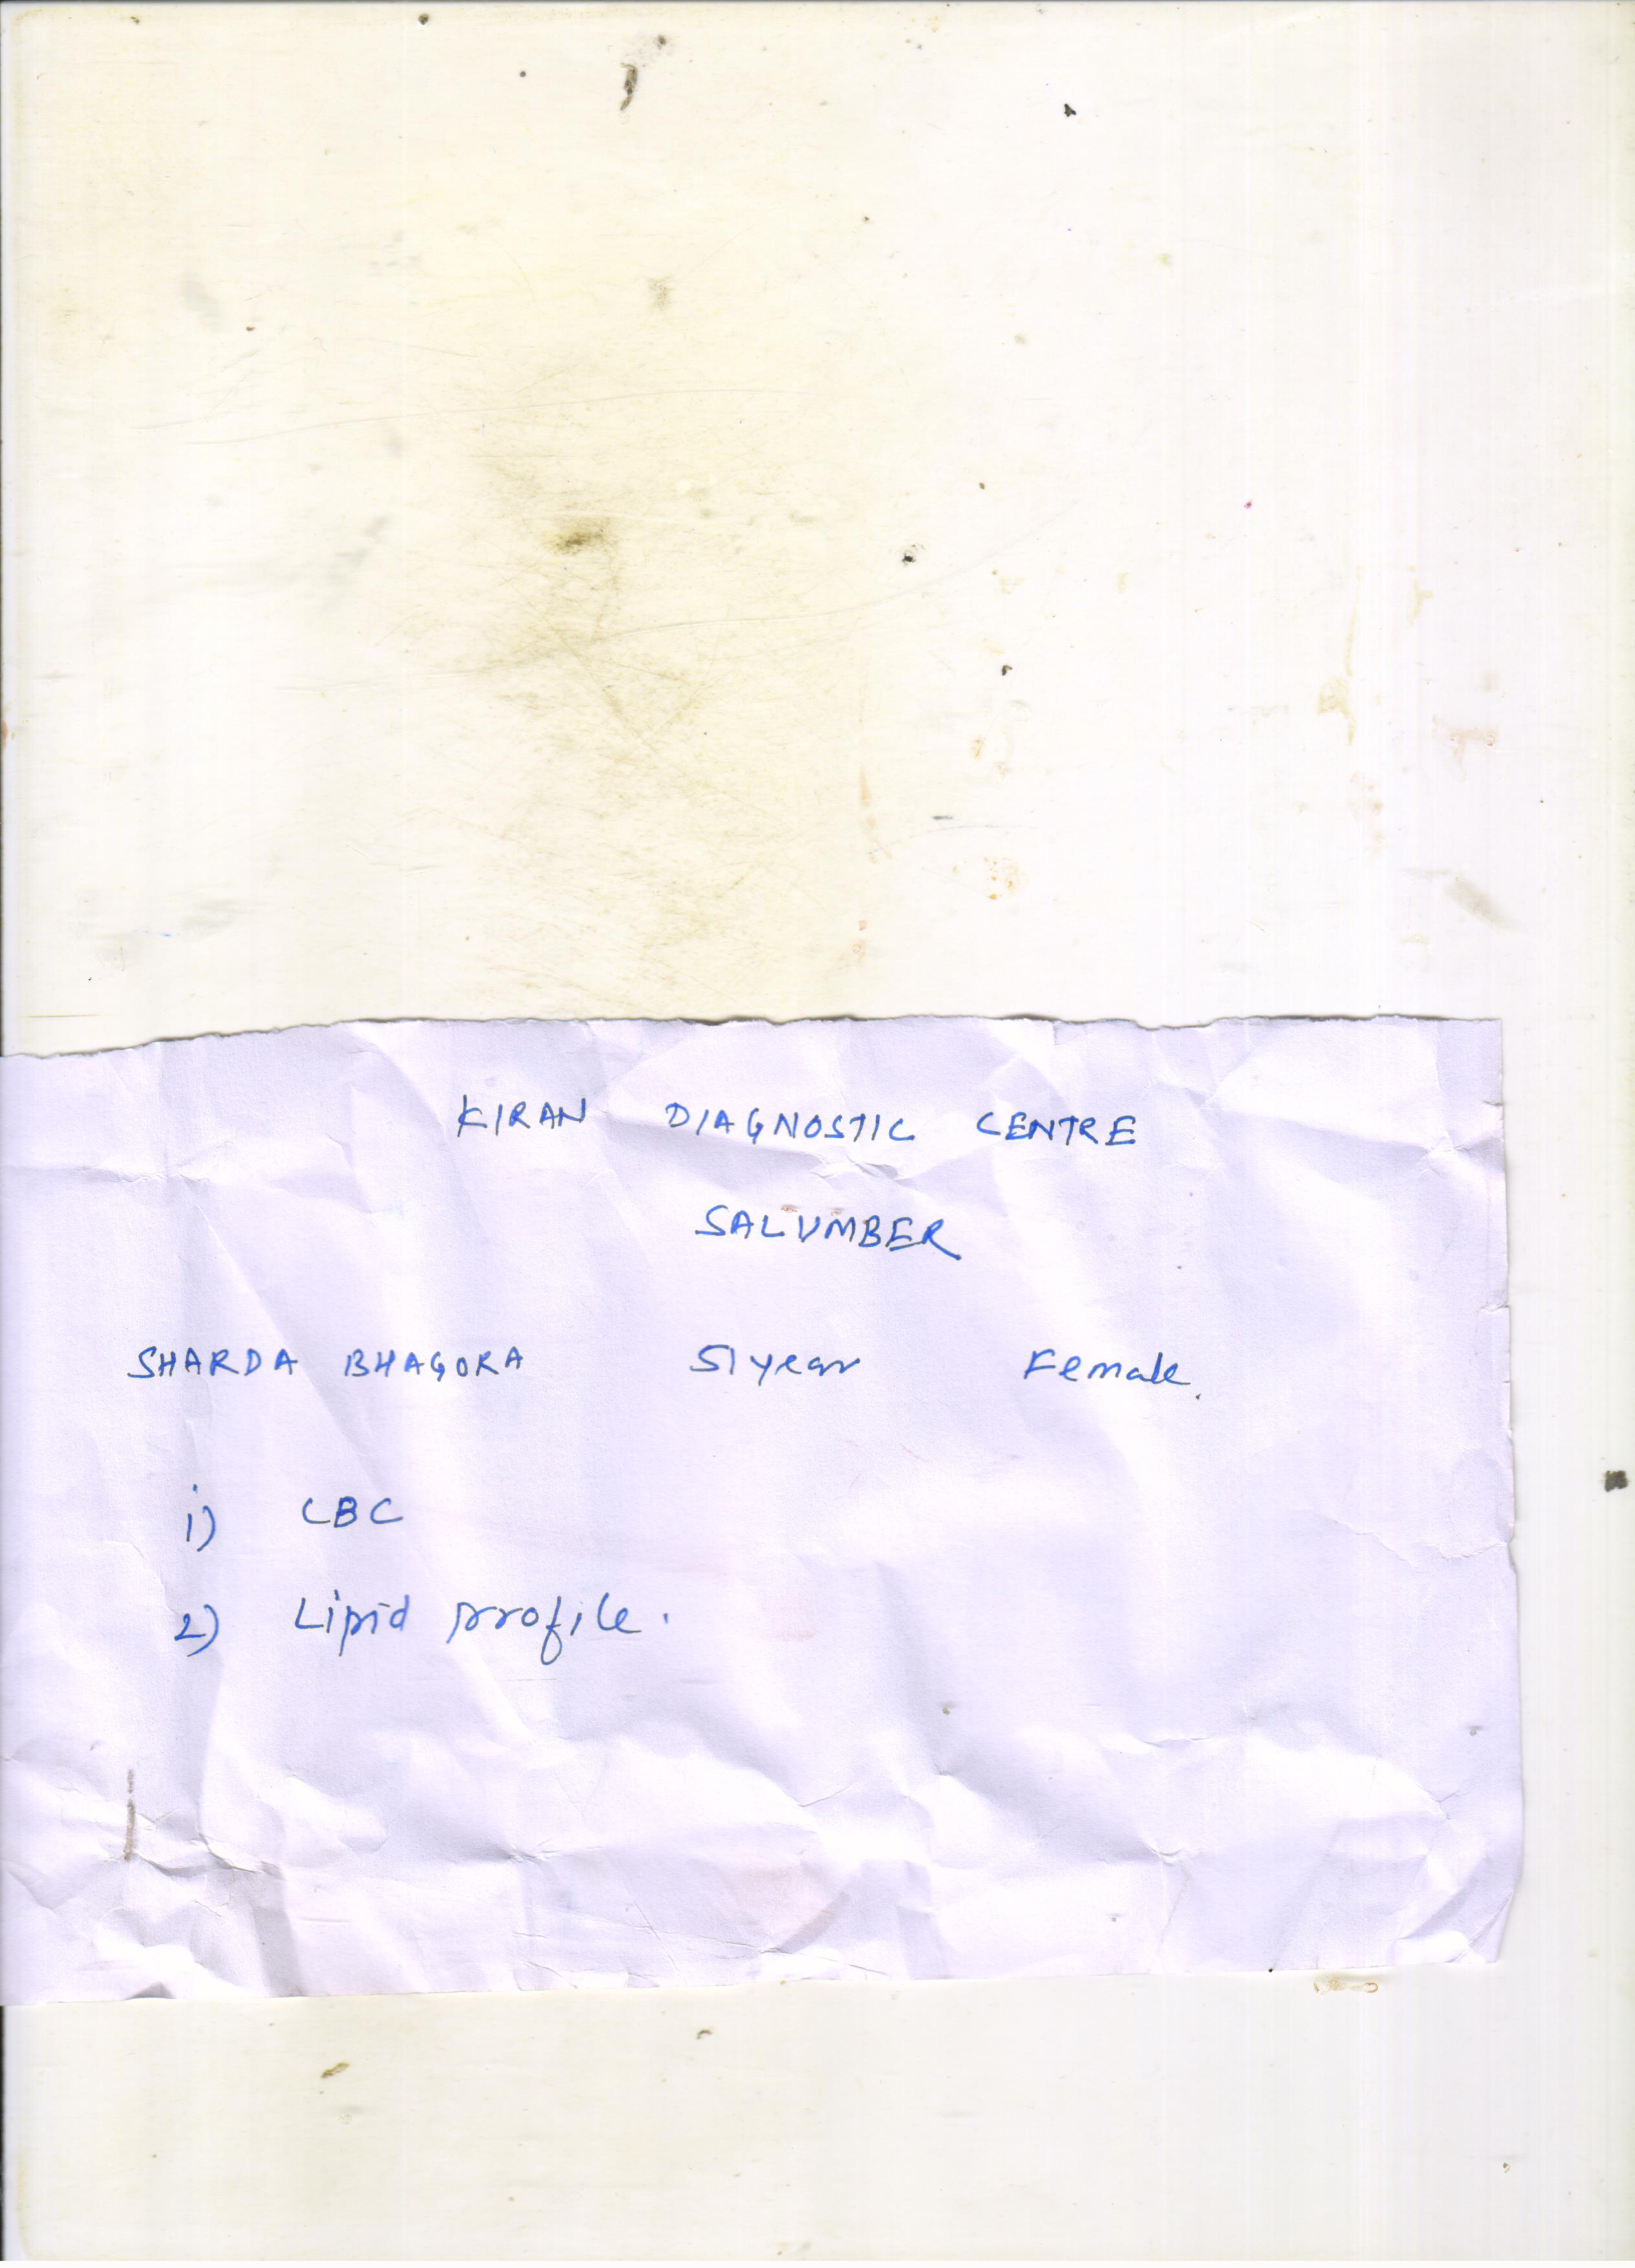 KIRAN DIAGNOSTIC CENTRE
SALUMBER
SHARDA BHAGORA 51 year Female.
1) CBC
2) Lipid profile.